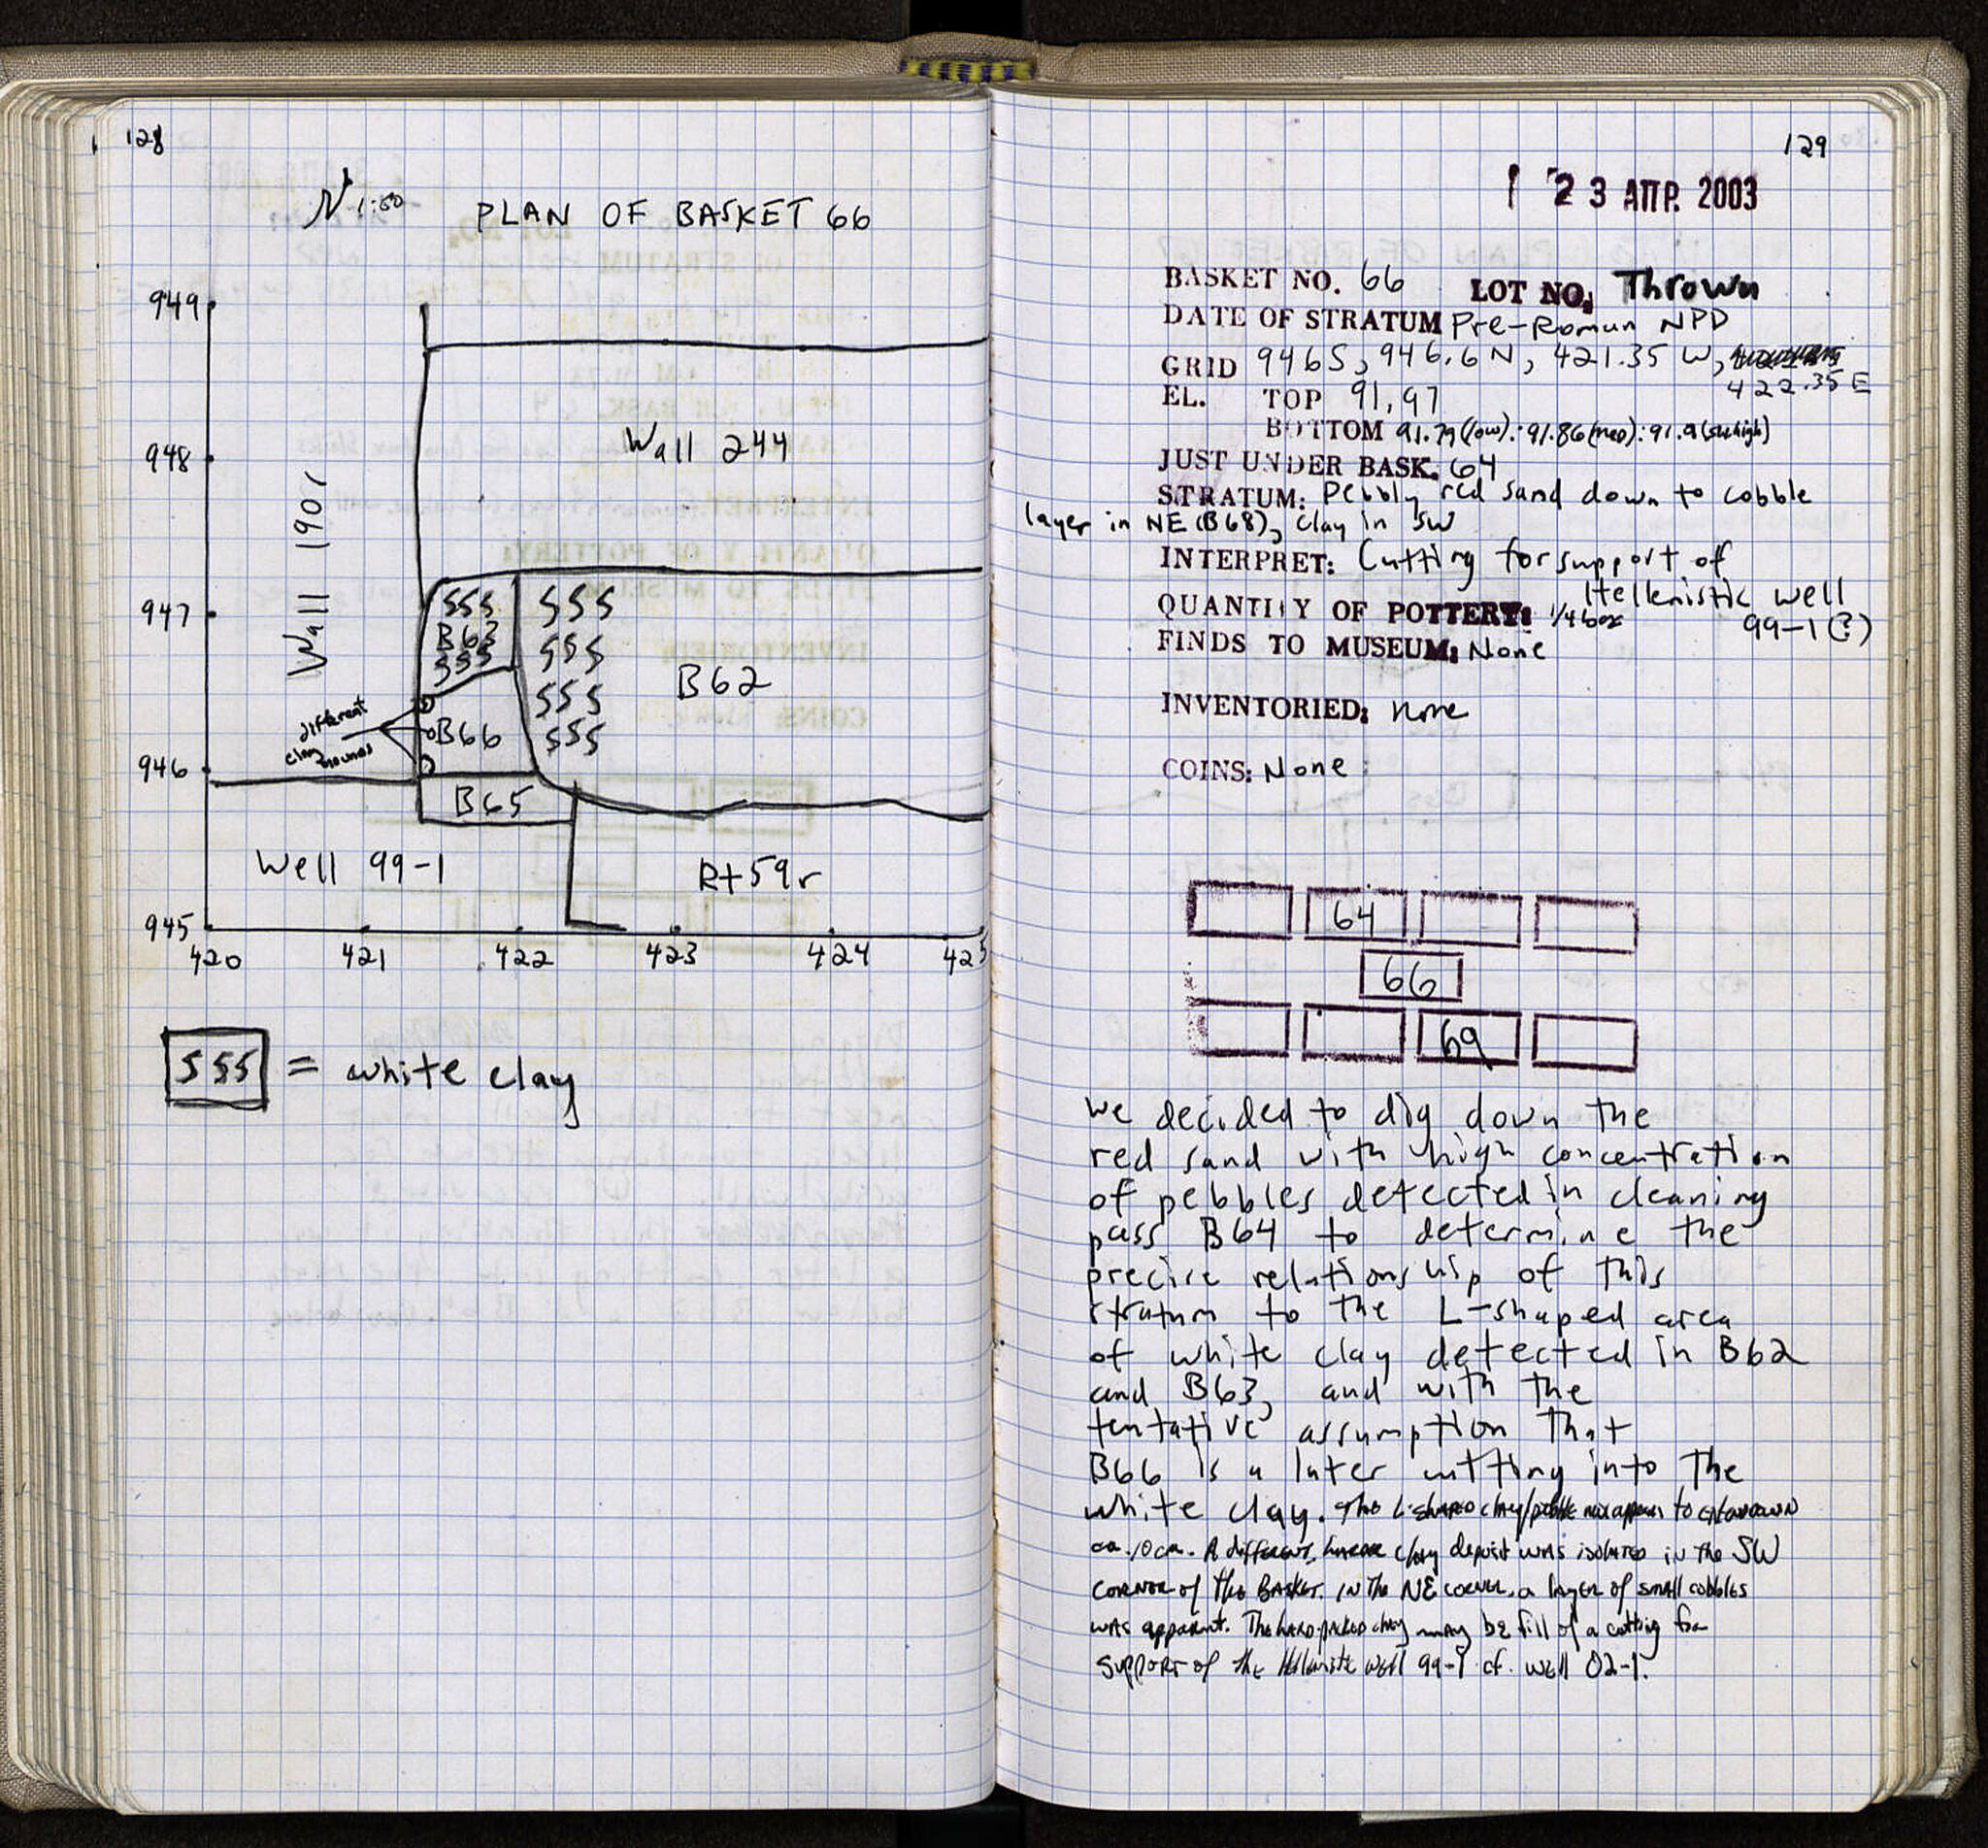 128
N 1:50 PLAN OF BASKET 66
949
948
947
946
945
420 421 422 423 424 425
Wall 190r
Wall 244
SSS
B63
SSS
SSS
SSS
SSS
SSS
B62
different
clay
mounds
B66
B65
Well 99-1
Rt 59r
SSS = white clay
129
23 ΑΠΡ. 2003
BASKET NO. 66 LOT NO. Thrown
DATE OF STRATUM Pre-Roman NPD
GRID 946 S, 946.6 N, 421.35 W,
422.35 E
EL. TOP 91.97
BOTTOM 91.79 (low): 91.86 (med): 91.9
JUST UNDER BASK. 64
STRATUM: Pebbly red sand down to cobble
layer in NE (B68), clay in SW
INTERPRET: Cutting for support of
Hellenistic well
99-1 (?)
QUANTITY OF POTTERY: 1/4 box
FINDS TO MUSEUM: None
INVENTORIED: none
COINS: None
64
66
69
We decided to dig down the
red sand with high concentration
of pebbles detected in cleaning
pass B64 to determine the
precise relationship of this
stratum to the L-shaped area
of white clay detected in B62
and B63, and with the
tentative assumption that
B66 is a later cutting into the
white clay. The L-shaped clay/pebble mix appears to extend down
ca. 10 cm. A different, harder clay deposit was isolated in the SW
corner of the Basket. In the NE corner, a layer of small cobbles
was apparent. The hard-packed clay may be fill of a cutting for
support of the Hellenistic well 99-1 cf. well 02-1.